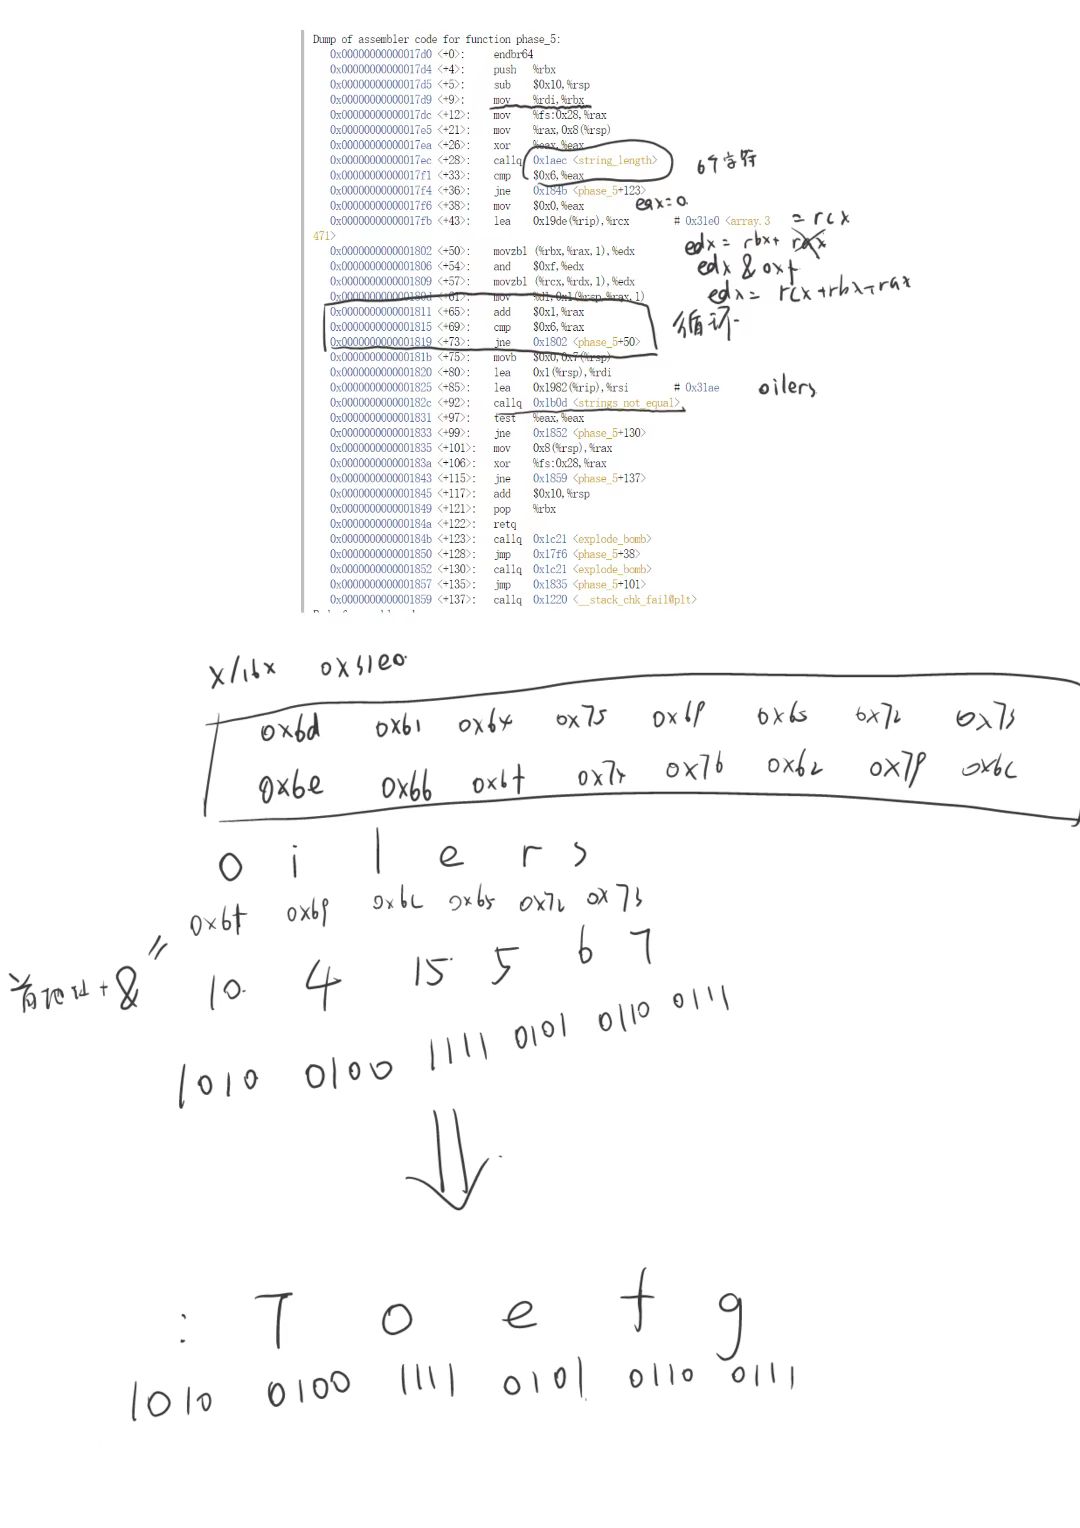 Dump of assembler code for function phase_5:
0x00000000000017d0 <+0>: endbr64
0x00000000000017d4 <+4>: push %rbx
0x00000000000017d5 <+5>: sub $0x10,%rsp
0x00000000000017d9 <+9>: mov %rdi,%rbx
0x00000000000017dc <+12>: mov %fs:0x28,%rax
0x00000000000017e5 <+21>: mov %rax,0x8(%rsp)
0x00000000000017ea <+26>: xor %eax,%eax
0x00000000000017ec <+28>: callq 0x1aec <string_length>
6个字符
0x00000000000017f1 <+33>: cmp $0x6,%eax
0x00000000000017f4 <+36>: jne 0x184b <phase_5+123>
0x00000000000017f6 <+38>: mov $0x0,%eax eax=0
0x00000000000017fb <+43>: lea 0x19de(%rip),%rcx # 0x31e0 <array.3 = rcx
471>
0x0000000000001802 <+50>: movzbl (%rbx,%rax,1),%edx edx = rbx+ rax
0x0000000000001806 <+54>: and $0xf,%edx edx & 0xf
0x0000000000001809 <+57>: movzbl (%rcx,%rdx,1),%edx edx= rcx+rbx+rax
0x000000000000180d <+61>: mov %dl,0x1(%rsp,%rax,1)
0x0000000000001811 <+65>: add $0x1,%rax
0x0000000000001815 <+69>: cmp $0x6,%rax 循环
0x0000000000001819 <+73>: jne 0x1802 <phase_5+50>
0x000000000000181b <+75>: movb $0x0,0x7(%rsp)
0x0000000000001820 <+80>: lea 0x1(%rsp),%rdi
0x0000000000001825 <+85>: lea 0x1982(%rip),%rsi # 0x31ae oilers
0x000000000000182c <+92>: callq 0x1b0d <strings_not_equal>
0x0000000000001831 <+97>: test %eax,%eax
0x0000000000001833 <+99>: jne 0x1852 <phase_5+130>
0x0000000000001835 <+101>: mov 0x8(%rsp),%rax
0x000000000000183a <+106>: xor %fs:0x28,%rax
0x0000000000001843 <+115>: jne 0x1859 <phase_5+137>
0x0000000000001845 <+117>: add $0x10,%rsp
0x0000000000001849 <+121>: pop %rbx
0x000000000000184a <+122>: retq
0x000000000000184b <+123>: callq 0x1c21 <explode_bomb>
0x0000000000001850 <+128>: jmp 0x17f6 <phase_5+38>
0x0000000000001852 <+130>: callq 0x1c21 <explode_bomb>
0x0000000000001857 <+135>: jmp 0x1835 <phase_5+101>
0x0000000000001859 <+137>: callq 0x1220 <__stack_chk_fail@plt>
x/16x 0x31e0
0x6d 0x61 0x64 0x75 0x69 0x65 0x72 0x73
0x6e 0x66 0x6f 0x74 0x76 0x62 0x79 0x6c
o i l e r s
0x6f 0x69 0x6c 0x65 0x72 0x73
首地址+& = 10 4 15 5 6 7
1010 0100 1111 0101 0110 0111
: T o e f g
1010 0100 1111 0101 0110 0111